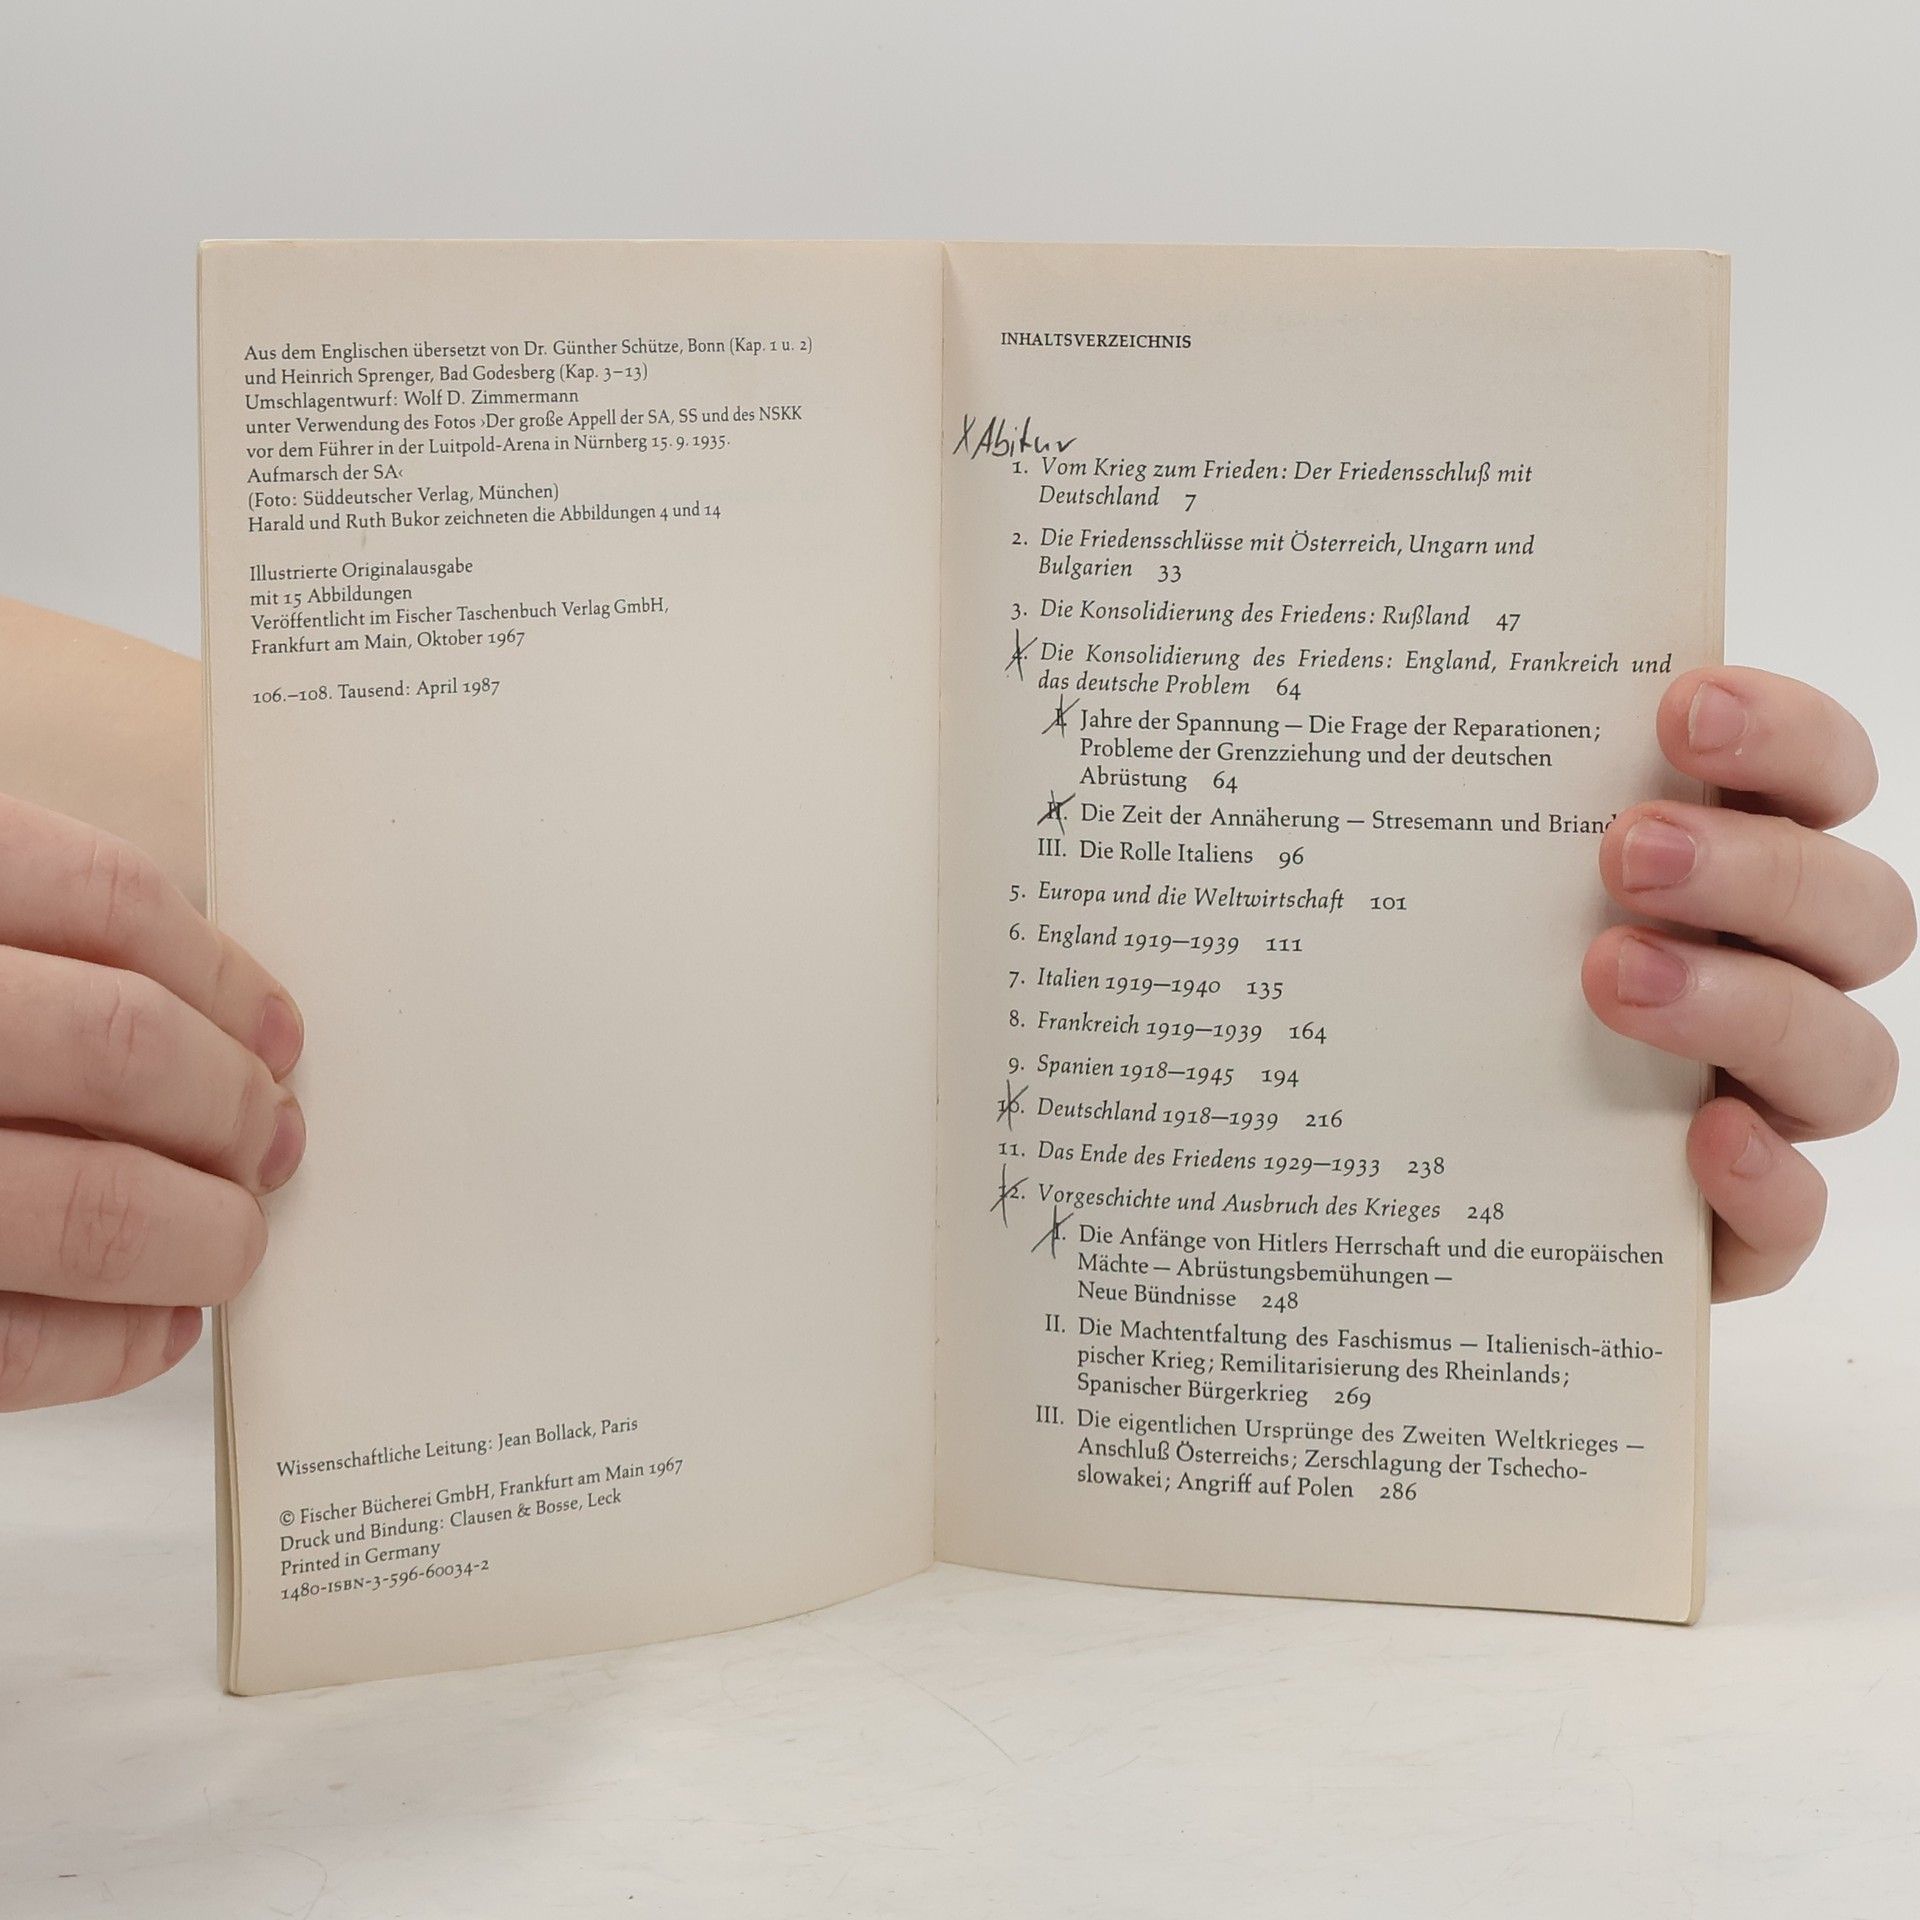 Aus dem Englischen übersetzt von Dr. Günther Schütze, Bonn (Kap. 1 u. 2)
und Heinrich Sprenger, Bad Godesberg (Kap. 3–13)
Umschlagentwurf: Wolf D. Zimmermann
unter Verwendung des Fotos ›Der große Appell der SA, SS und des NSKK
vor dem Führer in der Luitpold-Arena in Nürnberg 15. 9. 1935.
Aufmarsch der SA‹
(Foto: Süddeutscher Verlag, München)
Harald und Ruth Bukor zeichneten die Abbildungen 4 und 14
Illustrierte Originalausgabe
mit 15 Abbildungen
Veröffentlicht im Fischer Taschenbuch Verlag GmbH,
Frankfurt am Main, Oktober 1967
106.–108. Tausend: April 1987
Wissenschaftliche Leitung: Jean Bollack, Paris
© Fischer Bücherei GmbH, Frankfurt am Main 1967
Druck und Bindung: Clausen & Bosse, Leck
Printed in Germany
1480-ISBN-3-596-60034-2
INHALTSVERZEICHNIS
X Abitur
1. Vom Krieg zum Frieden: Der Friedensschluß mit
Deutschland 7
2. Die Friedensschlüsse mit Österreich, Ungarn und
Bulgarien 33
3. Die Konsolidierung des Friedens: Rußland 47
4. Die Konsolidierung des Friedens: England, Frankreich und
das deutsche Problem 64
I. Jahre der Spannung — Die Frage der Reparationen;
Probleme der Grenzziehung und der deutschen
Abrüstung 64
II. Die Zeit der Annäherung — Stresemann und Briand
III. Die Rolle Italiens 96
5. Europa und die Weltwirtschaft 101
6. England 1919—1939 111
7. Italien 1919—1940 135
8. Frankreich 1919—1939 164
9. Spanien 1918—1945 194
10. Deutschland 1918—1939 216
11. Das Ende des Friedens 1929—1933 238
12. Vorgeschichte und Ausbruch des Krieges 248
I. Die Anfänge von Hitlers Herrschaft und die europäischen
Mächte — Abrüstungsbemühungen —
Neue Bündnisse 248
II. Die Machtentfaltung des Faschismus — Italienisch-äthio-
pischer Krieg; Remilitarisierung des Rheinlands;
Spanischer Bürgerkrieg 269
III. Die eigentlichen Ursprünge des Zweiten Weltkrieges —
Anschluß Österreichs; Zerschlagung der Tschecho-
slowakei; Angriff auf Polen 286